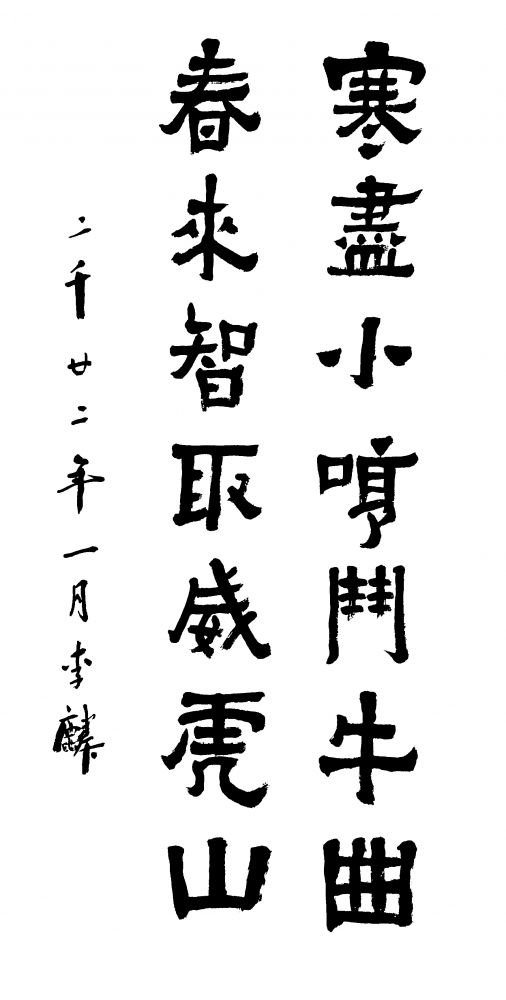 寒盡小哼鬥牛曲
春來智取威虎山
二千廿二年一月李麟